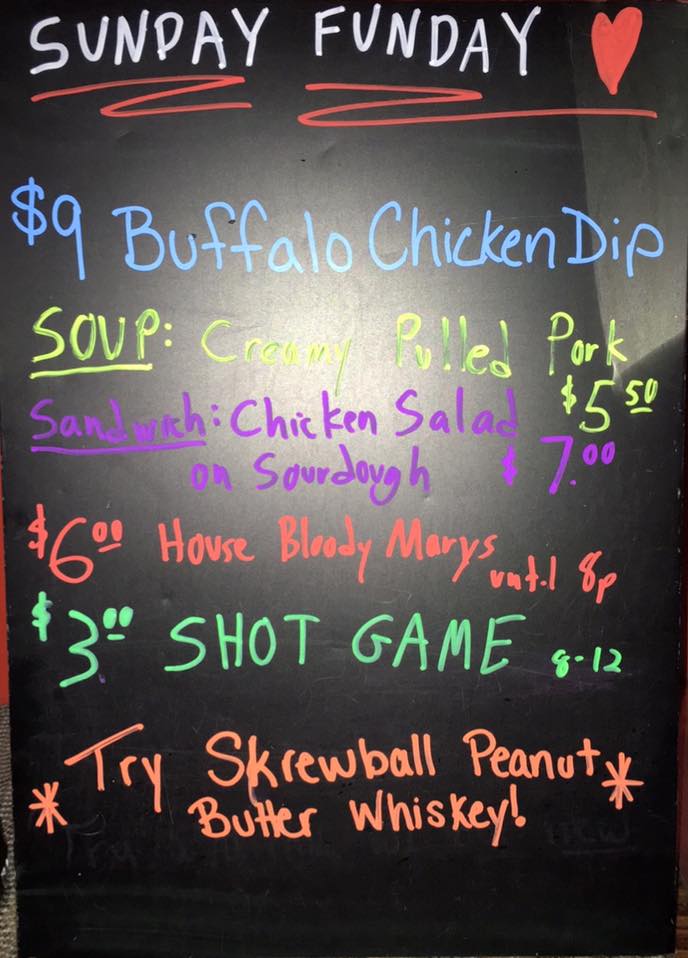 SUNDAY FUNDAY
$9 Buffalo Chicken Dip
SOUP: Creamy Pulled Pork
$5 50
Sandwich: Chicken Salad
on Sourdough $7.00
$6 00 House Bloody Marys until 8p
$3 00 SHOT GAME 8-12
* Try Skrewball Peanut *
Butter Whiskey!
Try
new